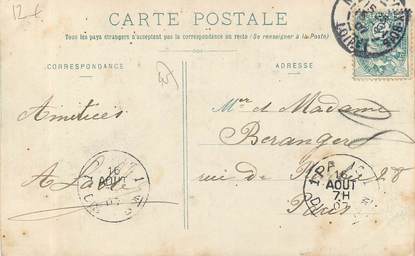 12 F
CARTE POSTALE
Tous les pays étrangers n'acceptent pas la correspondance au recto (Se renseigner à la Poste)
CORRESPONDANCE
ADRESSE
Amitiées
A
Mr et Madame
Beranger
rue de
Paris
16
AOUT
07
16
AOUT
7H
07